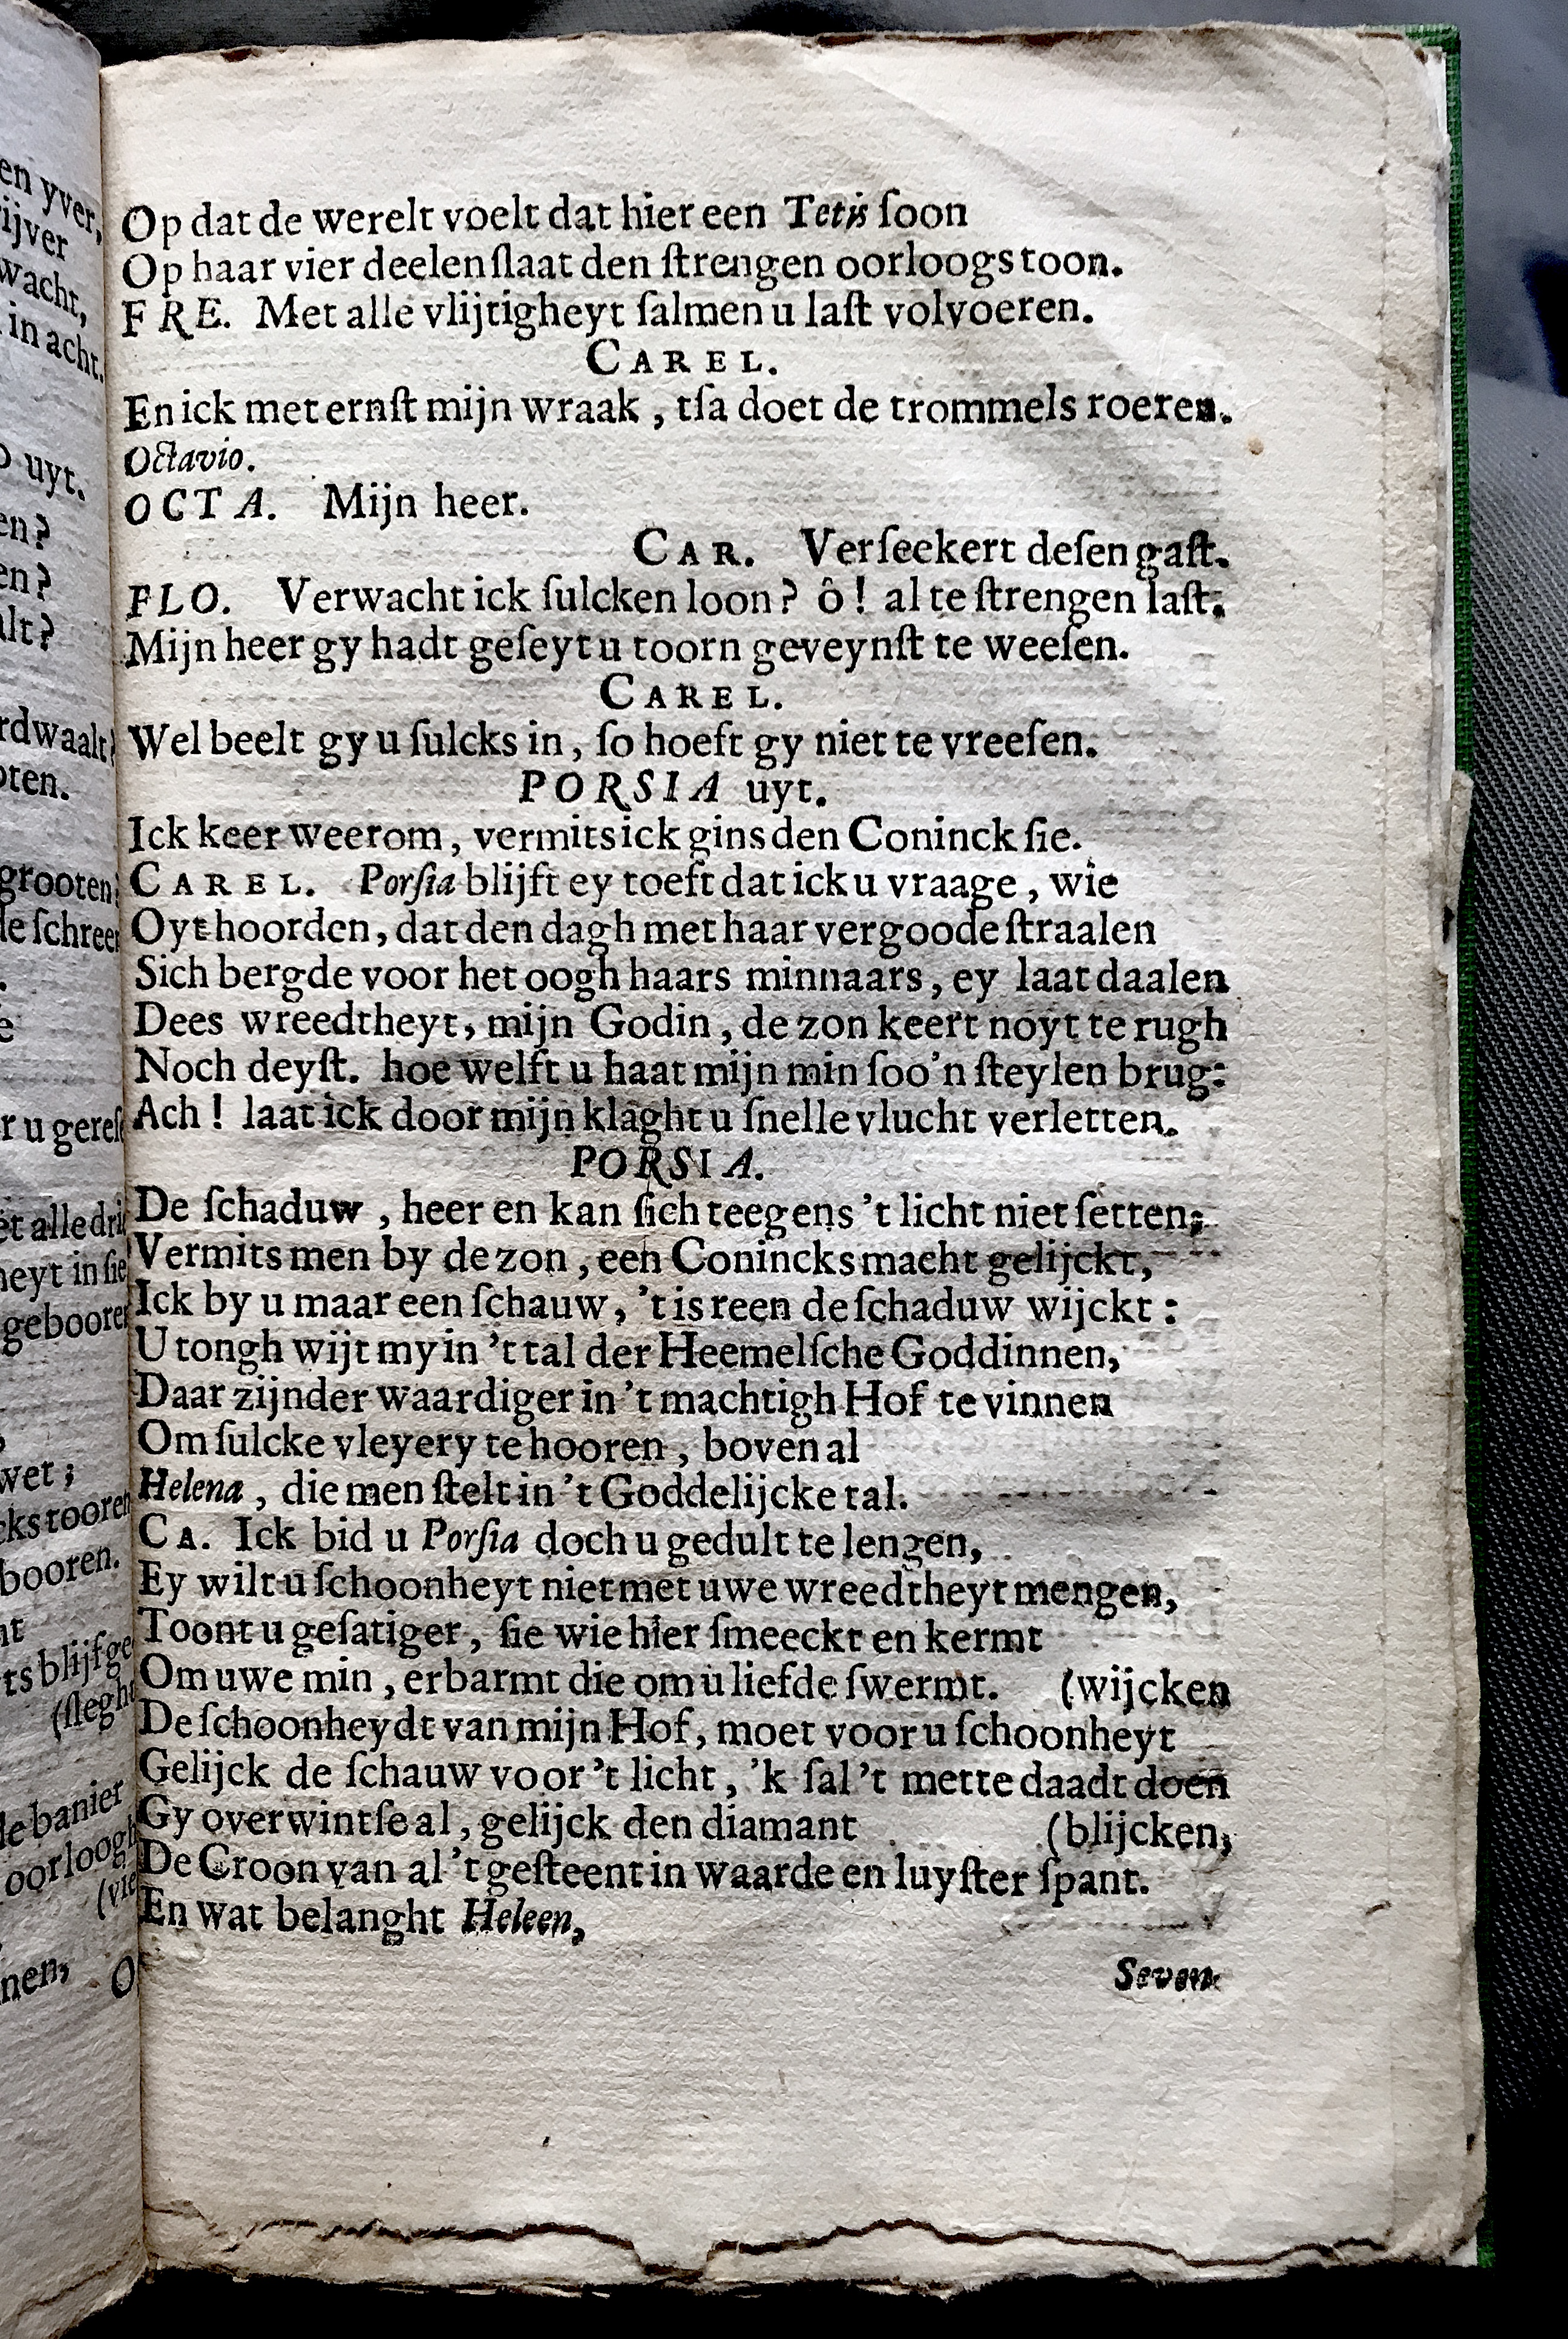 Op dat de werelt voelt dat hier een Tetis ſoon
Op haar vier deelen ſlaat den ſtrengen oorloogs toon.
FRE. Met alle vlijtigheyt ſalmen u laſt volvoeren.
CAREL.
En ick met ernſt mijn wraak, tſa doet de trommels roeren.
Octavio.
OCTA. Mijn heer.
CAR. Verſeekert deſen gaſt.
FLO. Verwacht ick ſulcken loon? ô! al te ſtrengen laſt.
Mijn heer gy hadt geſeyt u toorn geveynſt te weeſen.
CAREL.
Wel beelt gy u ſulcks in, ſo hoeft gy niet te vreeſen.
PORSIA uyt.
Ick keer weerom, vermits ick gins den Coninck ſie.
CAREL. Porſia blijft ey toeft dat ick u vraage, wie
Oyt hoorden, dat den dagh met haar vergoode ſtraalen
Sich bergde voor het oogh haars minnaars, ey laat daalen
Dees wreedtheyt, mijn Godin, de zon keert noyt te rugh
Noch deyſt. hoe welft u haat mijn min ſoo'n ſteylen brug:
Ach! laat ick door mijn klaght u ſnelle vlucht verletten.
PORSIA.
De ſchaduw, heer en kan ſich teegens 't licht niet ſetten;
Vermits men by de zon, een Conincks macht gelijckt,
Ick by u maar een ſchauw, 't is reen de ſchaduw wijckt:
U tongh wijt my in 't tal der Heemelſche Goddinnen,
Daar zijnder waardiger in 't machtigh Hof te vinnen
Om ſulcke vleyery te hooren, boven al
Helena, die men ſtelt in 't Goddelijcke tal.
CA. Ick bid u Porſia doch u gedult te lengen,
Ey wilt u ſchoonheyt niet met uwe wreedtheyt mengen,
Toont u geſatiger, ſie wie hier ſmeeckt en kermt
Om uwe min, erbarmt die om u liefde ſwermt. (wijcken
De ſchoonheydt van mijn Hof, moet voor u ſchoonheyt
Gelijck de ſchauw voor 't licht, 'k ſal 't mette daadt doen
Gy overwintſe al, gelijck den diamant (blijcken,
De Croon van al 't geſteent in waarde en luyſter ſpant.
En wat belanght Heleen,
Seven-